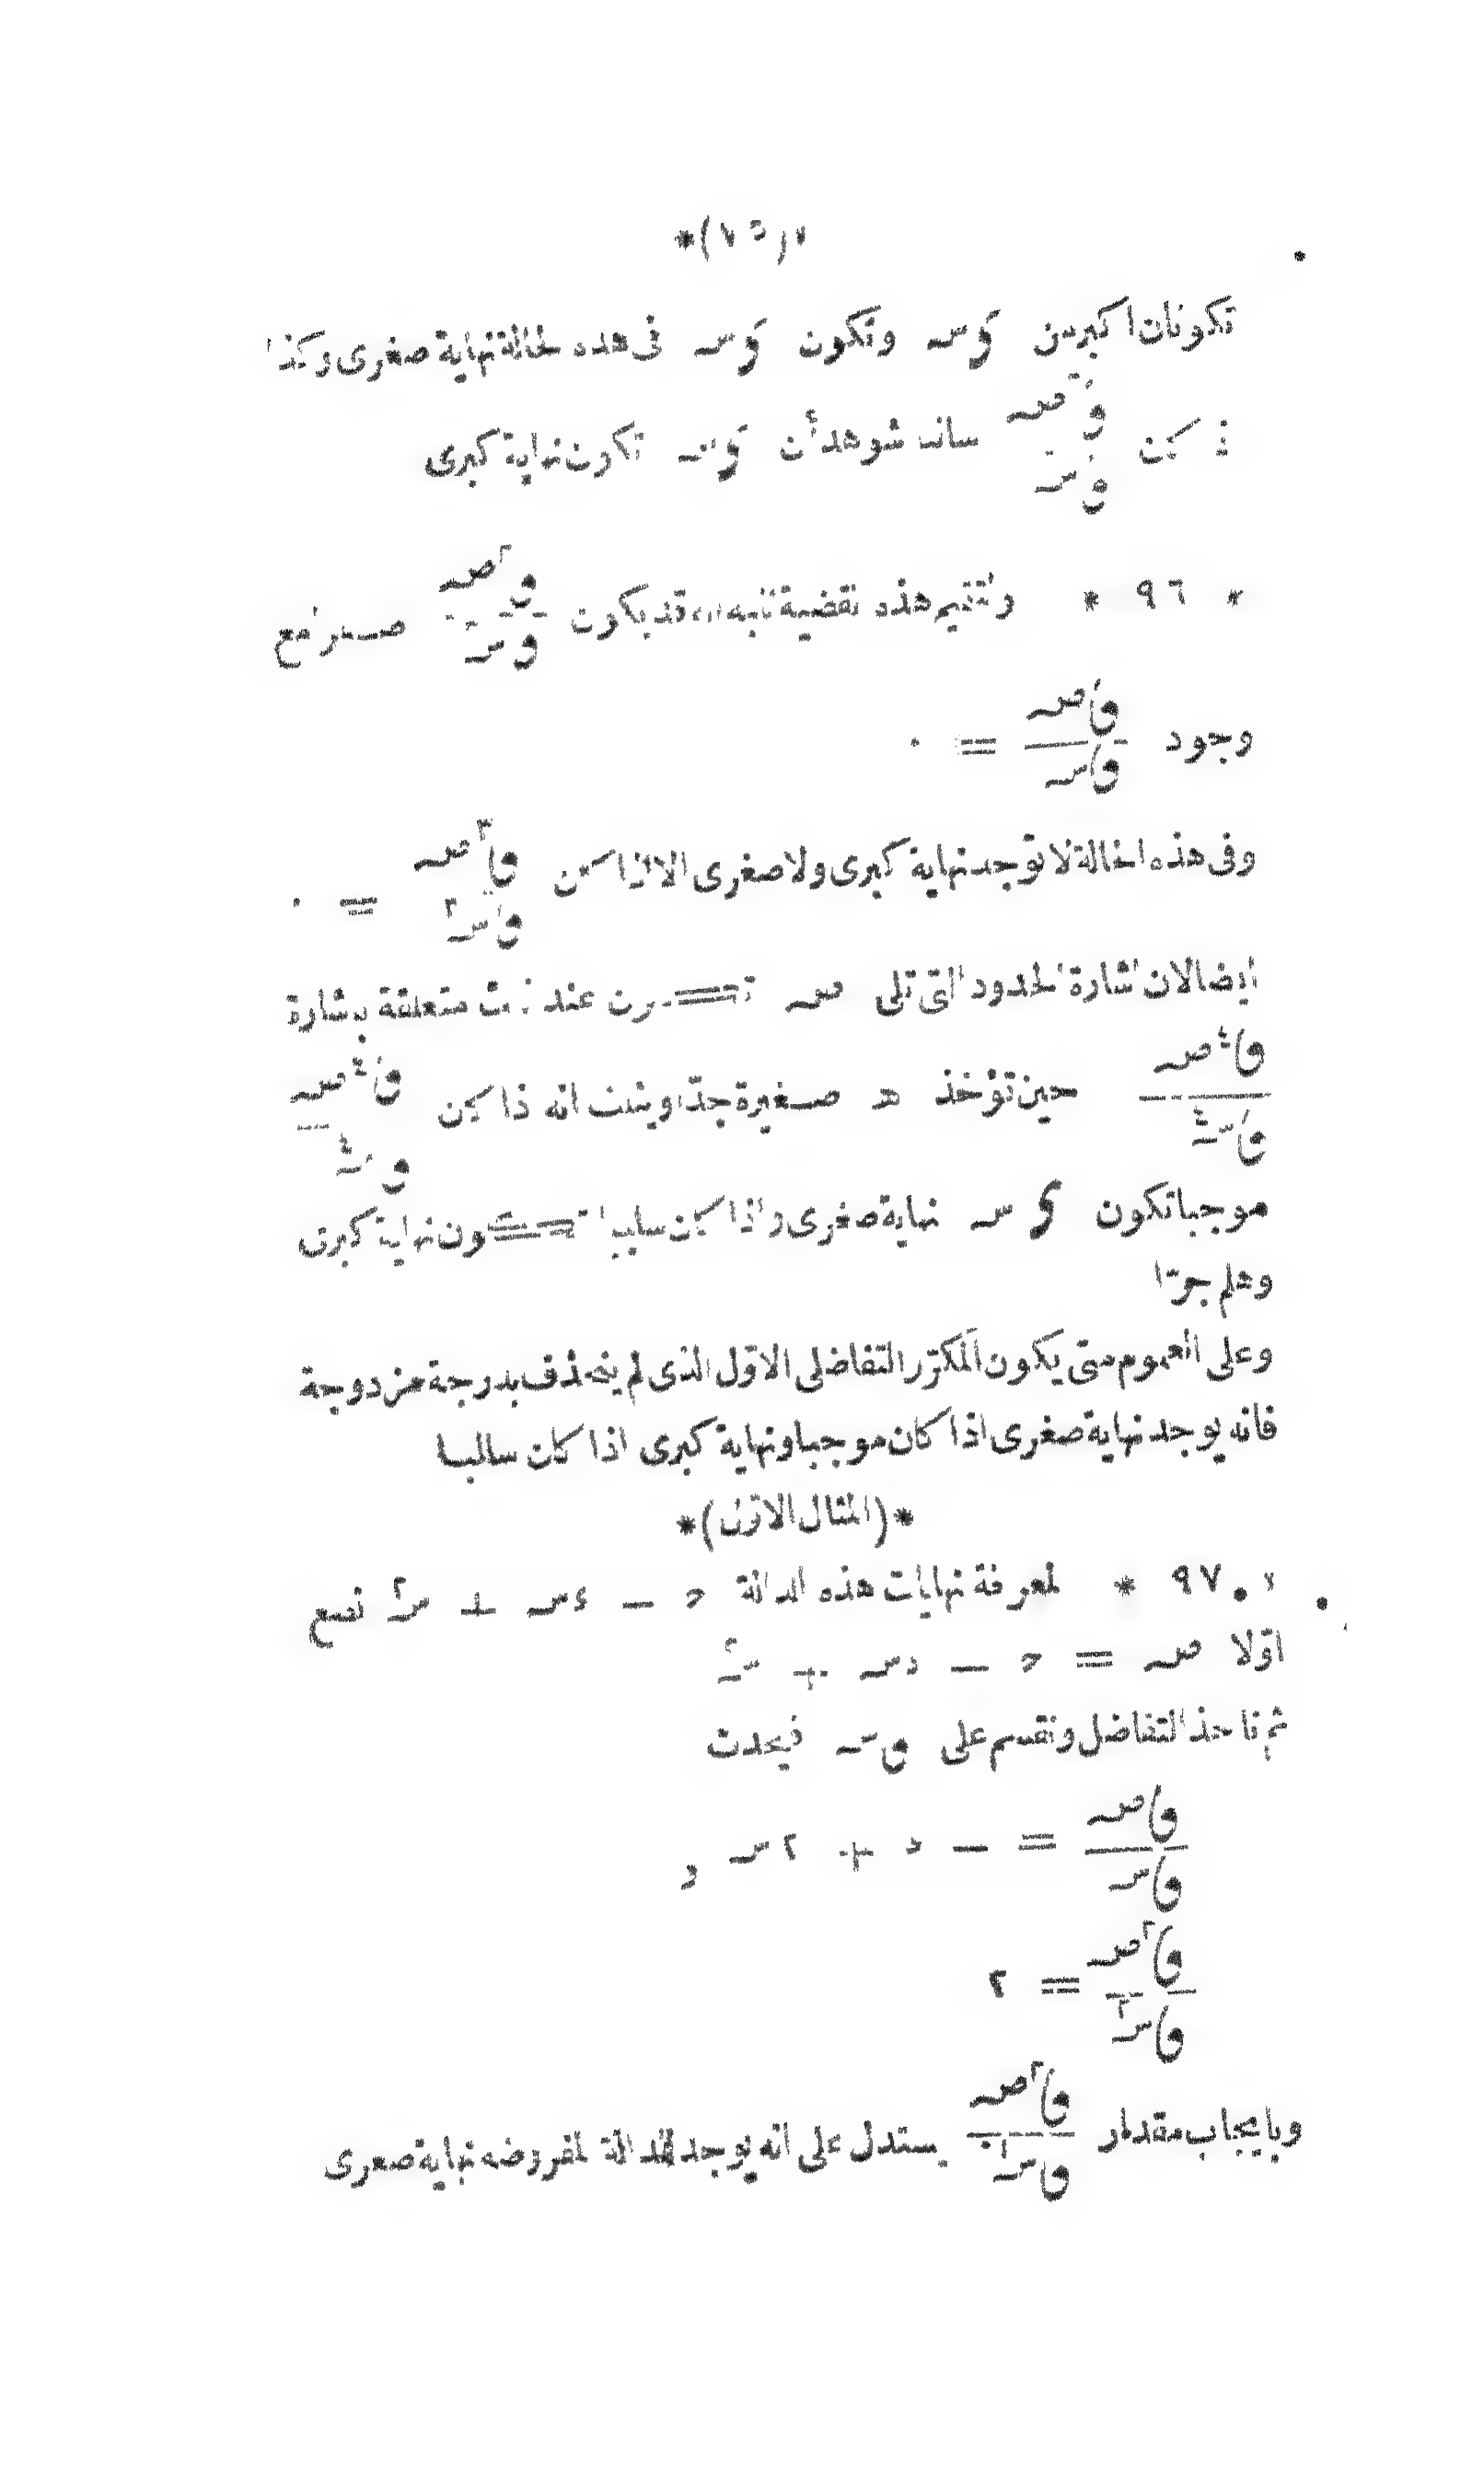 *(٧٥)*
تكونان اكبر من كَ س وتكون كَ س فى هذه الحالة نهاية صغرى وكذا
ق٢ص / ق س٢ سالبا شوهد أن كَ س تكون نهاية كبرى
* ٩٦ * ولتتميم هذه القضية ننبه انه قد يكون ق٢ص / ق س٢ صفرا مع
وجود ق ص / ق س = ٠
وفى هذه الحالة لا توجد نهاية كبرى ولا صغرى الا اذا كان ق٣ص / ق س٣ = ٠
ايضا لان اشارة الحدود التى تلى ص تكون عند ذلك متعلقة باشارة
ق٤ص / ق س٤ حين تؤخذ هـ صغيرة جدّا ويثبت انه اذا كان ق٤ص / ق س٤
موجبا تكون كَ س نهاية صغرى واذا كان سلبيا تكون نهاية كبرى
وهلم جرّا
وعلى العموم متى يكون المكرّر التفاضلى الاوّل الذى لم ينحذف بدرجة مزدوجة
فانه يوجد نهاية صغرى اذا كان موجبا ونهاية كبرى اذا كان سالبا
*(المثال الاوّل)*
* ٩٧ * لمعرفة نهايات هذه الدالة ح − ء س + س٢ نضع
اوّلا ص = ح − ء س + س٢
ثم ناخذ التفاضل ونقسم على ق س فيحدث
ق ص / ق س = − ء + ٢ س و
ق٢ص / ق س٢ = ٢
وبايجاب مقدار ق٢ص / ق س٢ يستدل على انه يوجد للدالة المفروضه نهاية صغرى